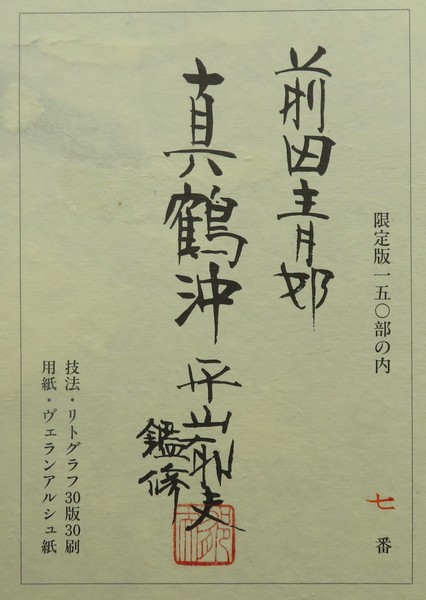 限定版一五〇部の内　七　番
前田青邨
真鶴沖
平山郁夫
鑑修
技法・リトグラフ30版30刷
用紙・ヴェランアルシュ紙